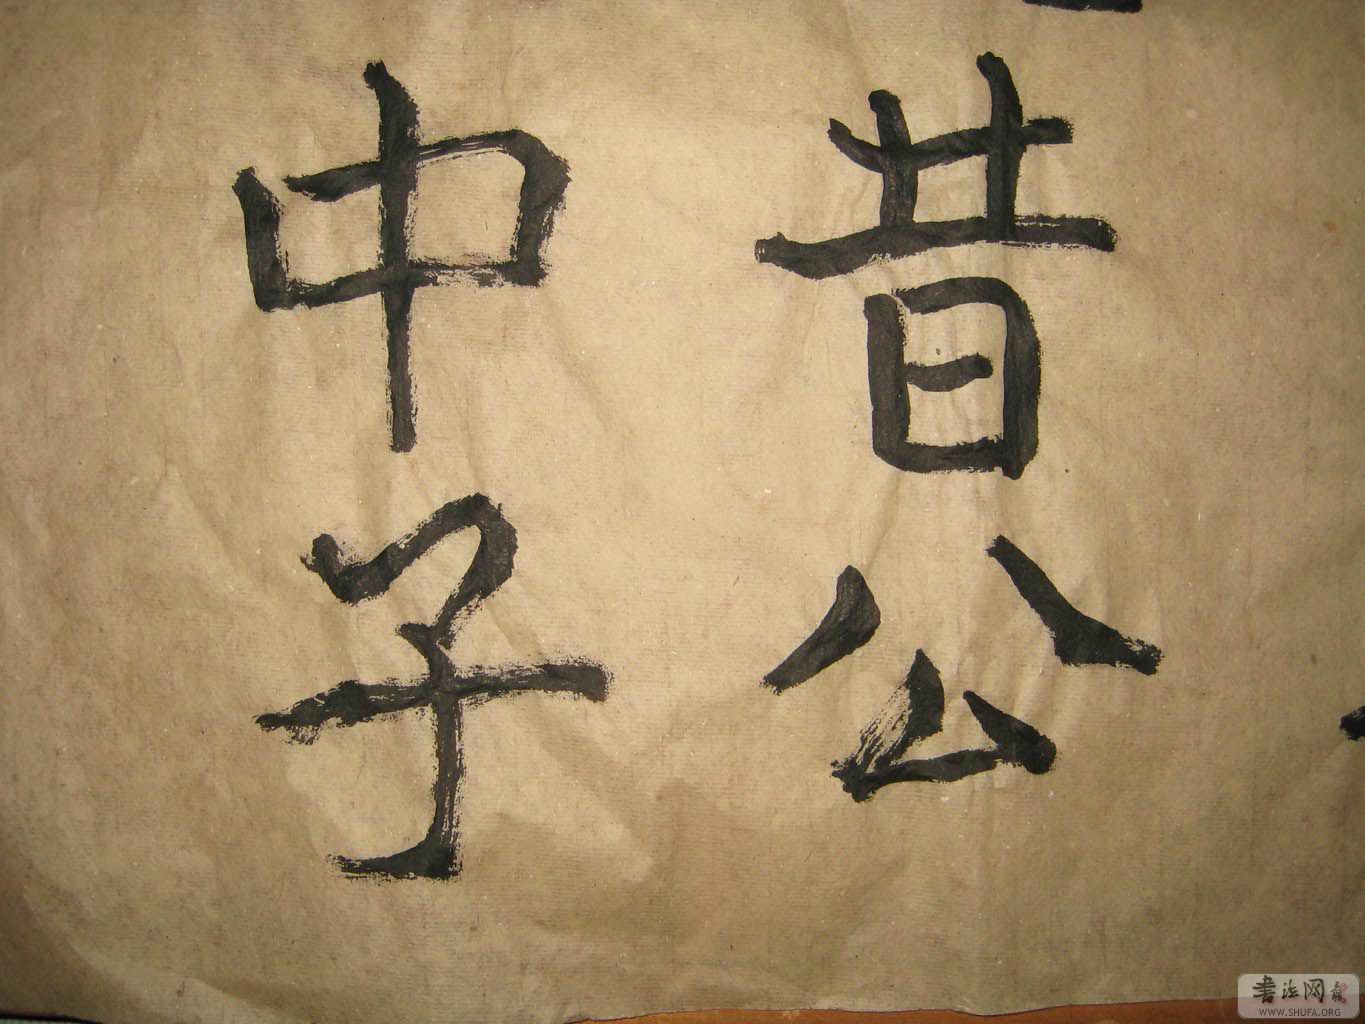 昔公
中子
书法网
WWW.SHUFA.ORG